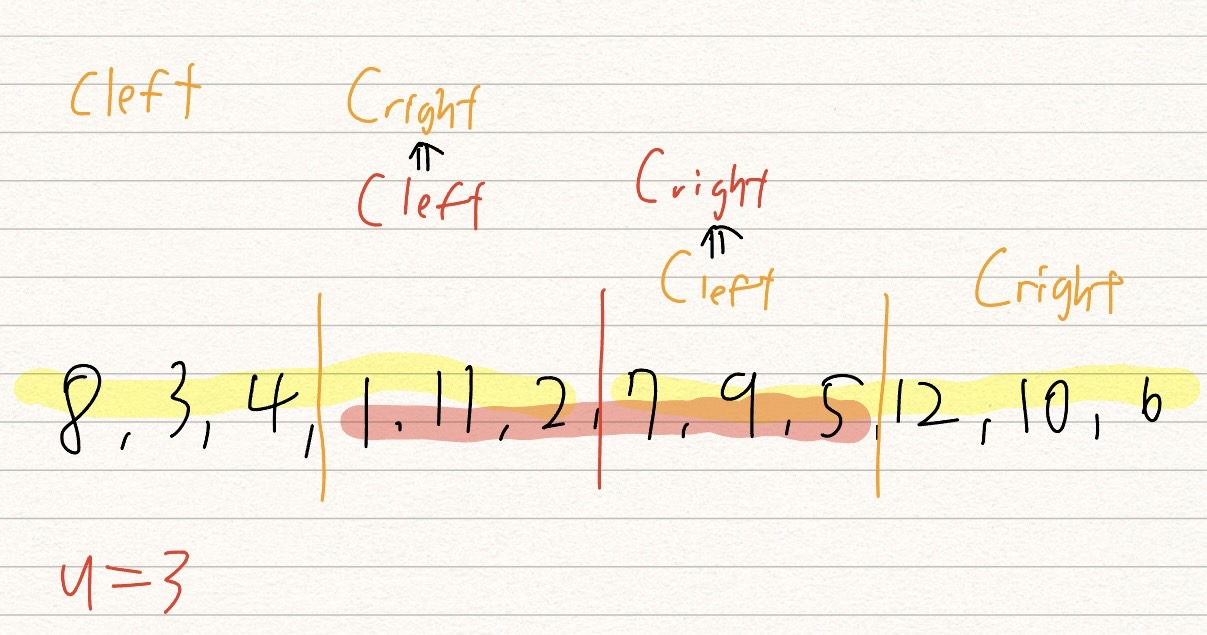 Cleft Cright
⇑
Cleft Cright
⇑
Cleft Cright
8, 3, 4, 1, 11, 2, 7, 9, 5, 12, 10, 6
u=3